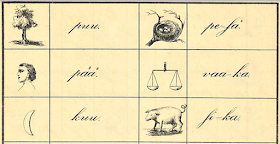 puu. pe-ſä.
pää. vaa-ka.
kuu. ſi-ka.